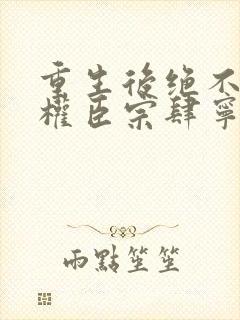 重生後绝不
權臣宗肆寧
雨點笙笙